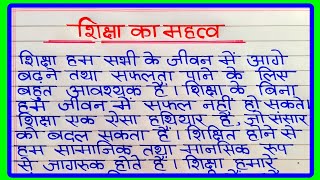 शिक्षा का महत्व
शिक्षा हम सभी के जीवन में आगे
बढ़ने तथा सफलता पाने के लिए
बहुत आवश्यक है। शिक्षा के बिना
हम जीवन में सफल नहीं हो सकते।
शिक्षा एक ऐसा हथियार है, जो संसार
को बदल सकता है। शिक्षित होने से
हम सामाजिक तथा मानसिक रूप
से जागरुक होते हैं। शिक्षा हमारे